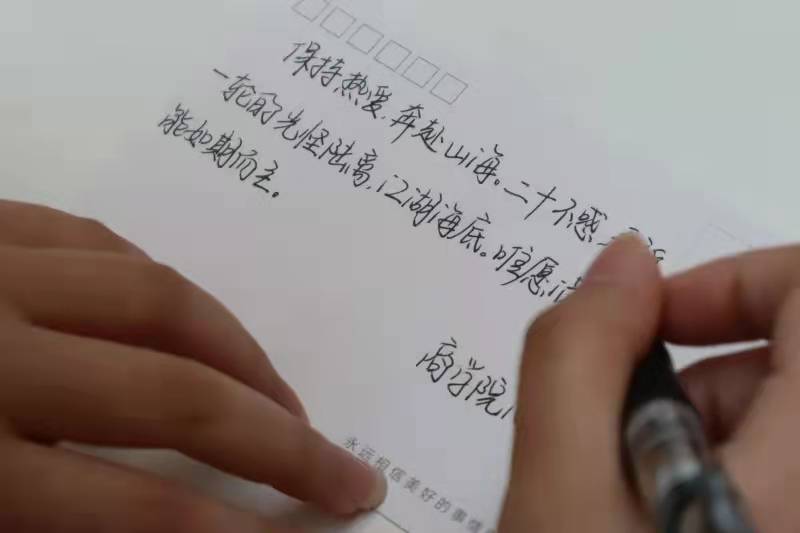 保持热爱，奔赴山海。二十不惑
一轮的光怪陆离，江湖海底。唯愿
能如期而至。
商学院
永远相信美好的事情